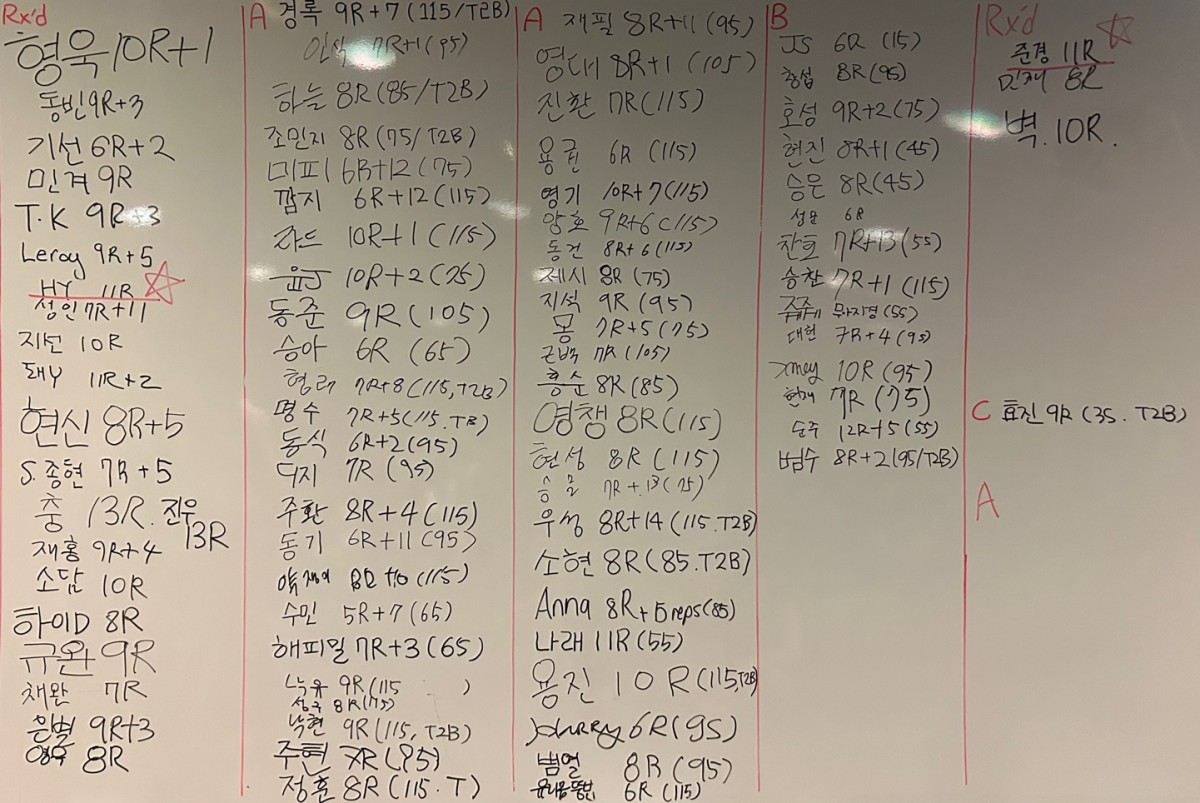 Rx'd
형욱 10R+1
동빈 9R+3
기선 6R+2
민겨 9R
T.K 9R+3
Leroy 9R+5
HY 11R
성인 7R+11
지선 10R
돼Y 11R+2
현신 8R+5
S.종현 7R+5
충 13R. 진우 13R
재홍 9R+4
소담 10R
하이D 8R
규완 9R
채완 7R
은별 9R+3
영욱 8R
A
경록 9R+7 (115/T2B)
인식 7R+1 (95)
하늘 8R (85/T2B)
조민지 8R (75/T2B)
미피 6R+12 (75)
깜지 6R+12 (115)
라드 10R+1 (115)
윤J 10R+2 (75)
동준 9R (105)
승아 6R (65)
형래 7R+8 (115,T2B)
명수 7R+5 (115.TB)
동식 6R+2 (95)
디지 7R (95)
주환 8R+4 (115)
동기 6R+11 (95)
(115)
수민 5R+7 (65)
해피밀 7R+3 (65)
9R (115 )
8R (75)
낙현 9R (115, T2B)
주현 7R (95)
정훈 8R (115.T)
A
재필 8R+11 (95)
영대 8R+1 (105)
진환 7R (115)
용균 6R (115)
영기 10R+7 (115)
양호 9R+6 (115)
동건 8R+6 (115)
제시 8R (75)
지석 9R (95)
몽 7R+5 (75)
근백 7R (105)
흥순 8R (85)
영챙 8R (115)
현성 8R (115)
7R+13 (75)
우성 8R+14 (115.T2B)
소현 8R (85.T2B)
Anna 8R+5reps (85)
나래 11R (55)
용진 10R (115,T2B)
6R (95)
범열 8R (95)
6R (115)
B
JS 6R (15)
황섭 8R (95)
호성 9R+2 (75)
현진 8R+1 (45)
승은 8R (45)
성윤 6R
찬호 7R+13 (55)
승찬 7R+1 (115)
(55)
대헌 7R+4 (95)
Jmay 10R (95)
현재 7R (75)
순주 12R+5 (55)
범수 8R+2 (95/T2B)
Rx'd
준경 11R
민재 8R
벽. 10R.
C 효진 9R (35. T2B)
A